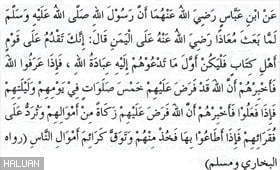 عَنْ ابْنِ عَبَّاسٍ رَضِيَ اللَّهُ عَنْهُمَا أَنَّ رَسُولَ اللَّهِ صَلَّى اللَّهُ عَلَيْهِ وَسَلَّمَ
لَمَّا بَعَثَ مُعَاذًا رَضِيَ اللَّهُ عَنْهُ عَلَى الْيَمَنِ قَالَ: إِنَّكَ تَقْدَمُ عَلَى قَوْمٍ
أَهْلِ كِتَابٍ فَلْيَكُنْ أَوَّلَ مَا تَدْعُوهُمْ إِلَيْهِ عِبَادَةُ اللَّهِ ، فَإِذَا عَرَفُوا اللَّهَ
فَأَخْبِرْهُمْ أَنَّ اللَّهَ قَدْ فَرَضَ عَلَيْهِمْ خَمْسَ صَلَوَاتٍ فِي يَوْمِهِمْ وَلَيْلَتِهِمْ
فَإِذَا فَعَلُوا فَأَخْبِرْهُمْ أَنَّ اللَّهَ فَرَضَ عَلَيْهِمْ زَكَاةً مِنْ أَمْوَالِهِمْ وَتُرَدُّ عَلَى
فُقَرَائِهِمْ فَإِذَا أَطَاعُوا بِهَا فَخُذْ مِنْهُمْ وَتَوَقَّ كَرَائِمَ أَمْوَالِ النَّاسِ (رواه
البخاري ومسلم)
HALUAN